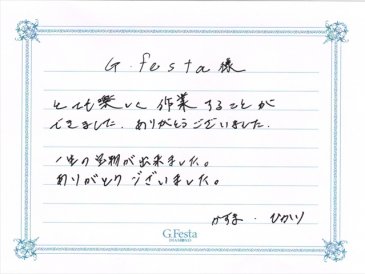 G.festa様
とても楽しく作業することが
できました。ありがとうございました.
一生の宝物が出来ました。
ありがとうございました。
かずま・ひかり
G.Festa